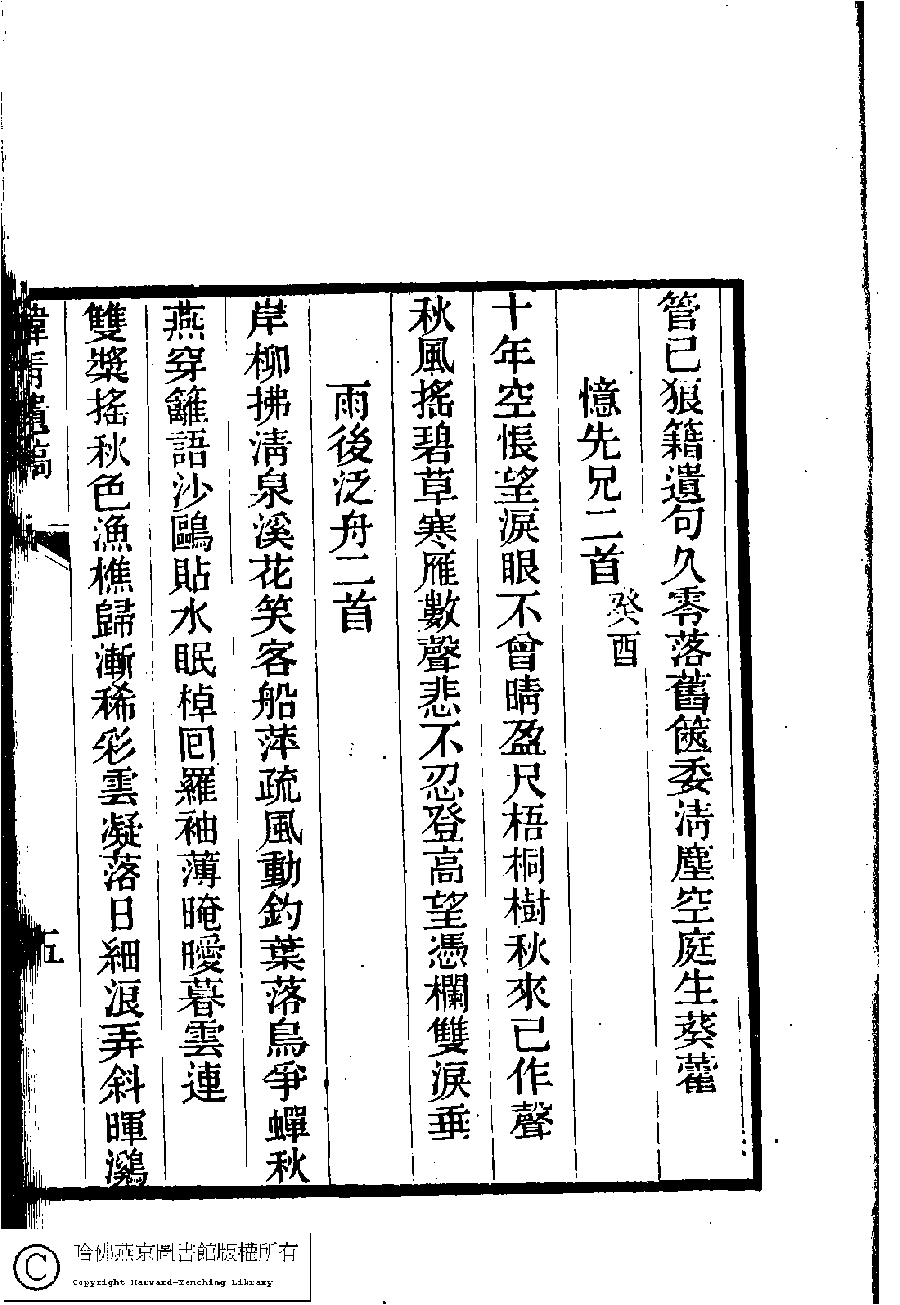 管已狼籍遺句久零落舊篋委清塵空庭生葵藿
憶先兄二首癸酉
十年空悵望淚眼不曾晴盈尺梧桐樹秋來已作聲
秋風搖碧草寒雁數聲悲不忍登高望憑欄雙淚垂
雨後泛舟二首
岸柳拂清泉溪花笑客船萍疏風動釣葉落鳥爭蟬秋
燕穿籬語沙鷗貼水眠棹回羅袖薄晻曖暮雲連
雙槳搖秋色漁樵歸漸稀彩雲凝落日細浪弄斜暉鸂
遺稿
五
哈佛燕京圖書館版權所有
Copyright Harvard-Yenching Library